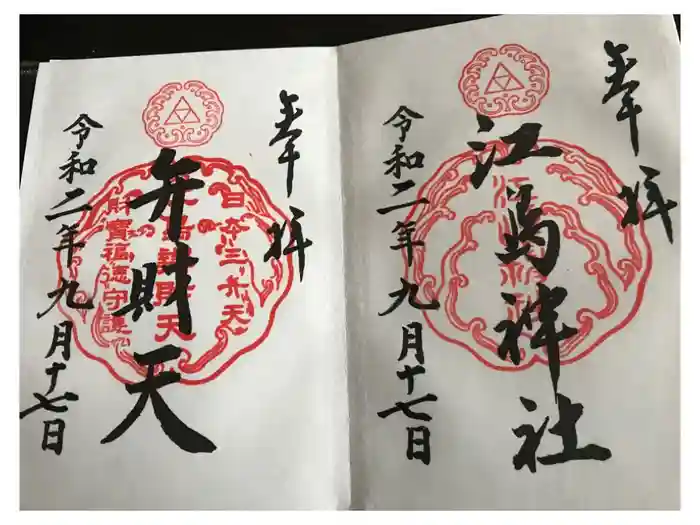 奉拝
江島神社
令和二年九月十七日
奉拝
弁財天
日本三弁天
財寶福徳守護
令和二年九月十七日